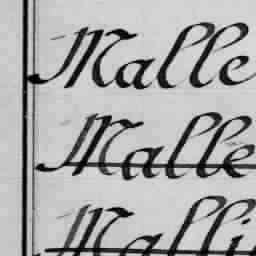 Malle
Malle
Malli